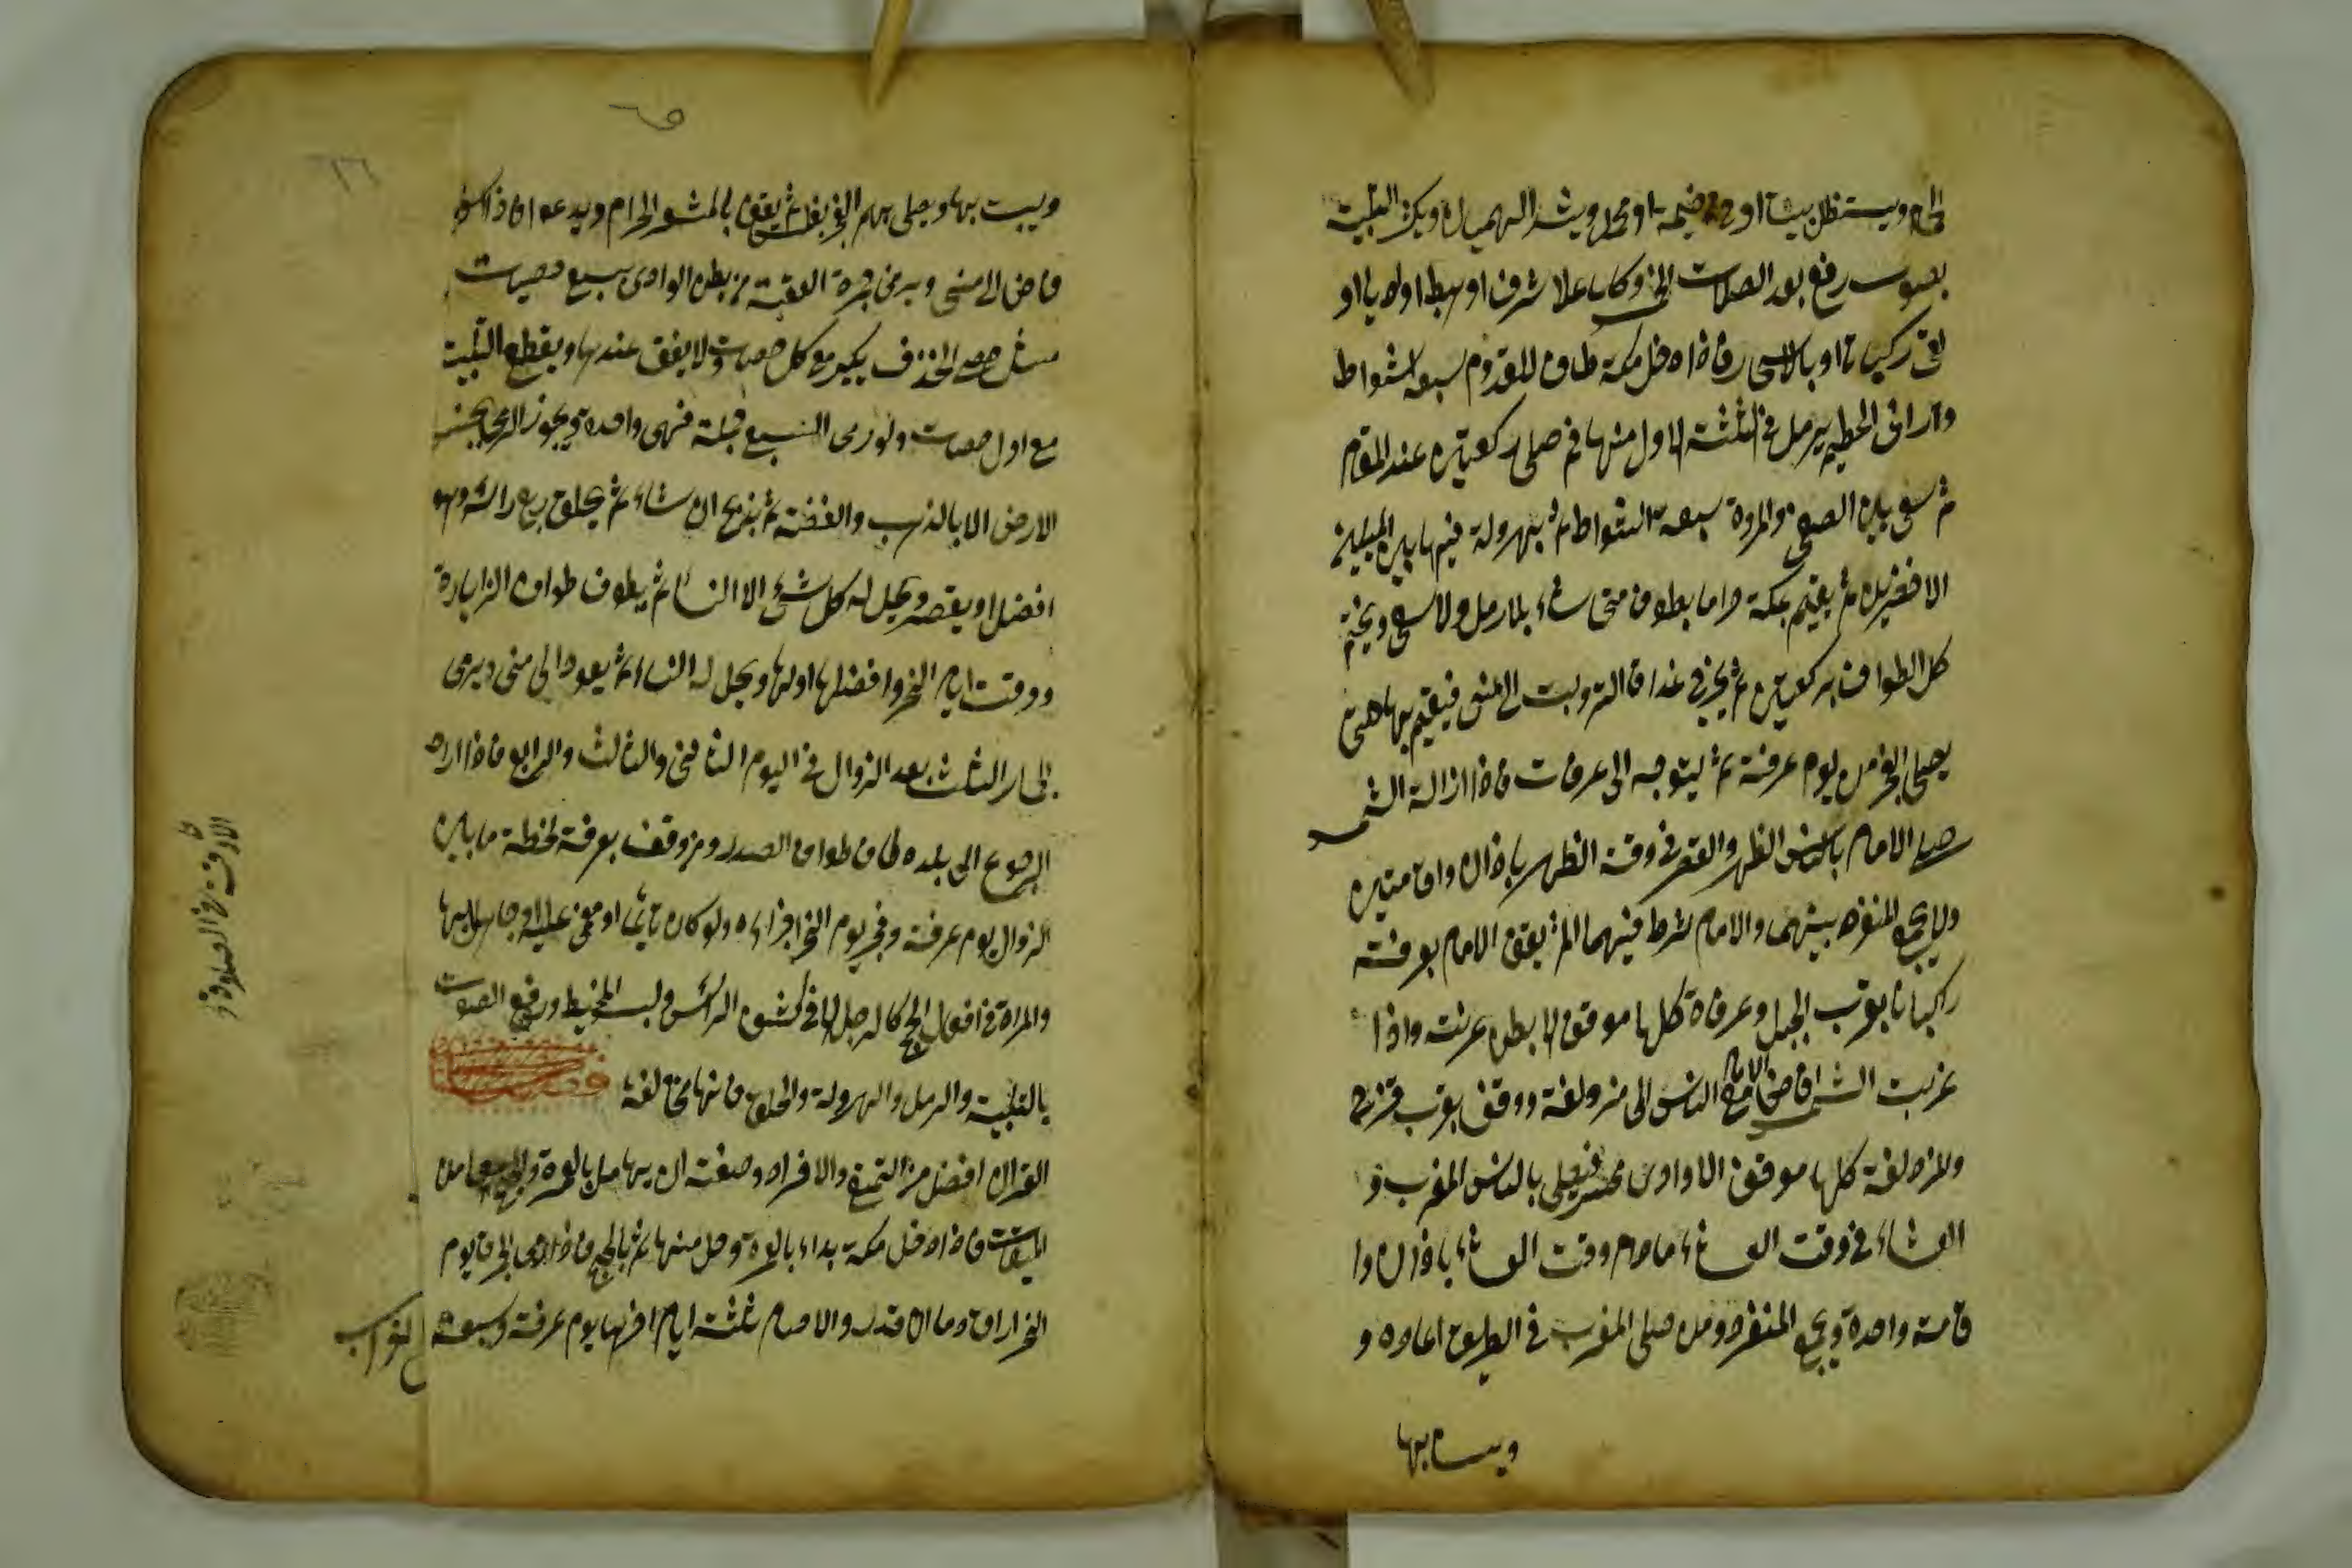 الحمام ويستظل ببيت او خيمة او محمل ويشد الهميان ويكثر التلبية
بصوت رفيع بعد الصلات الخمس وكلما علا شرفا او هبط اوديا او
لقى ركبانا او بالاسحار فاذا دخل مكة طاف للقدوم سبعة اشواط
وراى الحطيم يرمل في الثلثة الاول منها ثم صلى ركعتين عند المقام
ثم سعى بين الصفى والمروة سبعة اشواط يهرولة فيها بين الميلين
الاخضرين ثم يقيم بمكة حراما يطوف متى شاء بلا رمل ولا سعى ويختم
كل الطواف بركعتين ثم يخرج في غداة التروية الى منى فيقيم بها حتى
يصلى الفجر من يوم عرفة ثم يتوجه الى عرفات فاذا زالة الشمس
صلى الامام بالناس الظهر والعصر في وقت الظهر باذان واقامتين
ولا يجمع المنفرد بينهما والامام شرط فيهما ثم يقف الامام بعرفة
راكبانا بقرب الجبل وعرفاة كلها موقف الا بطن عرنة واذا
غربت الشمس افاض الامام مع الناس الى مزدلفة ووقف بقرب قزح
والمزدلفة كلها موقف الا وادى محسر فيصلى بالناس المغرب و
العشاء في وقت العشاء مادام وقت العشاء باذان وا
قامة واحدة ويجمع المنفرد ومن صلى المغرب في الطريق اعاده و
ويبيت بها
ويبيت بها ويصلى بهم الفجر بغلس ثم يقف بالمشعر الحرام ويدعو فاذا اسفر
فاض الى منى ويرمى جمرة العقبة من بطن الوادى بسبع حصيات
مثل حصى الخذف يكبر مع كل حصاة ولا يقف عندها ويقطع التلبية
مع اول حصات ولو رمى السبع جملة فهى واحدة ويجوز الرمى بجنس
الارض الا بالذهب والفضة ثم يذبح ان شاء ثم يحلق ربع راسه وهو
افضل او يقصر ويحل له كل شئ الا النساء ثم يطوف طواف الزيادرة
ووقت ايام النحر وافضلها اولها ويحل له النساء ثم يعود الى منى ويرمى
الجمار الثلث بعد الزوال في اليوم الثانى والثالث والرابع فاذا اراد
الرجوع الى بلده طاف طواف الصدر ومن وقف بعرفة لحظة ما بين
الزوال يوم عرفة وفجر يوم النحر اجزاءه ولو كان نائما او مغمى عليه او جاهلا بها
والمراة في افعال الحج كالرجل الا في كشف الراس ولبس المخيط ورفع الصوت
بالتلبية والرمل والهرولة والحلق فانها مخالفة فصل
القران افضل من التمتع والافراد وصفته ان يهل بالعمرة والحج معا من
الميقات فاذا دخل مكة بداء بالعمرة وحل منها ثم بالحج فاذا رمى الجمرة يوم
النحر اراق دما ان قدر والا صام ثلثة ايام اخرها يوم عرفة وسبعة